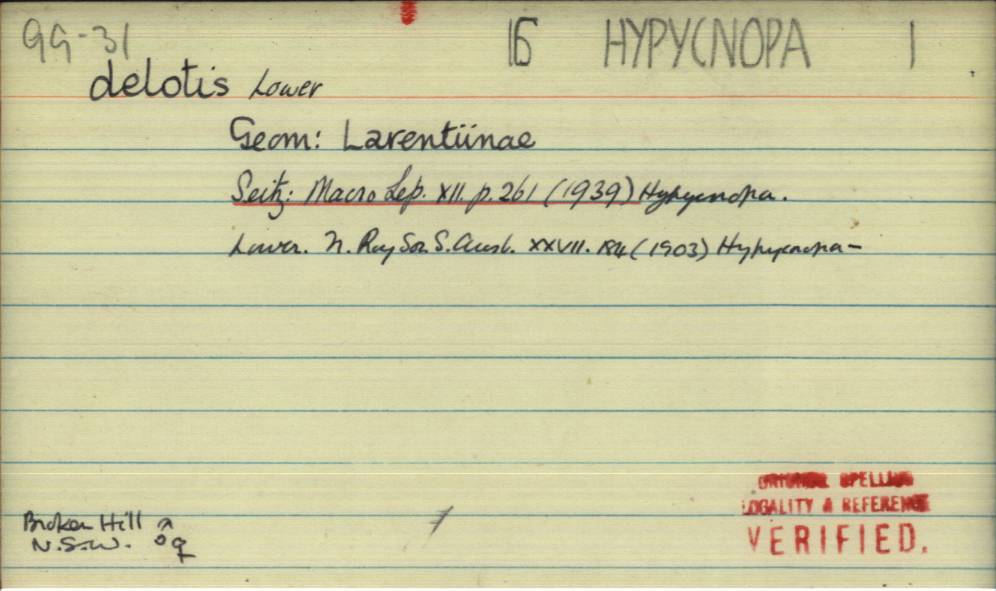 GG-31
16 HYPYCNOPA 1
delotis Lower
Geom: Larentiinae
Seitz: Macro Lep. XII. p. 261 (1939) Hypycnopa.
Lower. Roy Soc. S. Aust. XXVII. 184 (1903) Hypycnopa —
Broken Hill ♂
N.S.W. ♀
ORIGINAL SPELLING
LOCALITY & REFERENCE
VERIFIED.